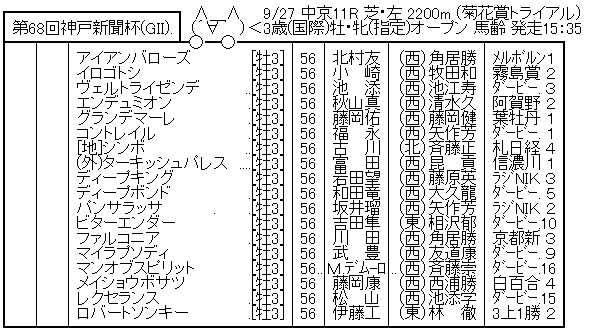 第68回神戸新聞杯(GII)
9/27 中京11R 芝・左 2200m (菊花賞トライアル)
<3歳(国際)牡・牝(指定)オープン 馬齢 発走15:35
アイアンバローズ [牡3] 56 北村友 (西)角居勝 メルボルン1
イロゴトシ [牡3] 56 小崎 (西)牧田和 霧島賞 2
ヴェルトライゼンデ ..[牡3] 56 池添 (西)池江寿 ダービー. 3
エンデュミオン [牡3] 56 秋山真 (西)清水久 阿賀野 2
グランデマーレ [牡3] 56 藤岡佑 (西)藤岡健 葉牡丹 1
コントレイル [牡3] 56 福永 (西)矢作芳 ダービー. 1
[地]シンボ [牡3] 56 古川 (北)斉藤正 札日経 4
(外)ターキッシュパレス ....[牡3] 56 富田 (西)昆貢 信濃川 1
ディープキング [牡3] 56 岩田望 (西)藤原英 ラジNIK 3
ディープボンド [牡3] 56 和田竜 (西)大久龍 ダービー. 5
パンサラッサ [牡3] 56 坂井瑠 (西)矢作芳 ラジNIK 2
ビターエンダー [牡3] 56 吉田隼 (東)相沢郁 ダービー.10
ファルコニア [牡3] 56 川田 (西)角居勝 京都新 3
マイラプソディ [牡3] 56 武豊 (西)友道康 ダービー. 9
マンオブスピリット ..[牡3] 56..M.デムーロ (西)斉藤崇 ダービー.16
メイショウボサツ [牡3] 56 藤岡康 (西)西浦勝 白百合 4
レクセランス [牡3] 56 松山 (西)池添学 ダービー.15
ロバートソンキー [牡3] 56 伊藤工 (東)林徹 3上1勝 2